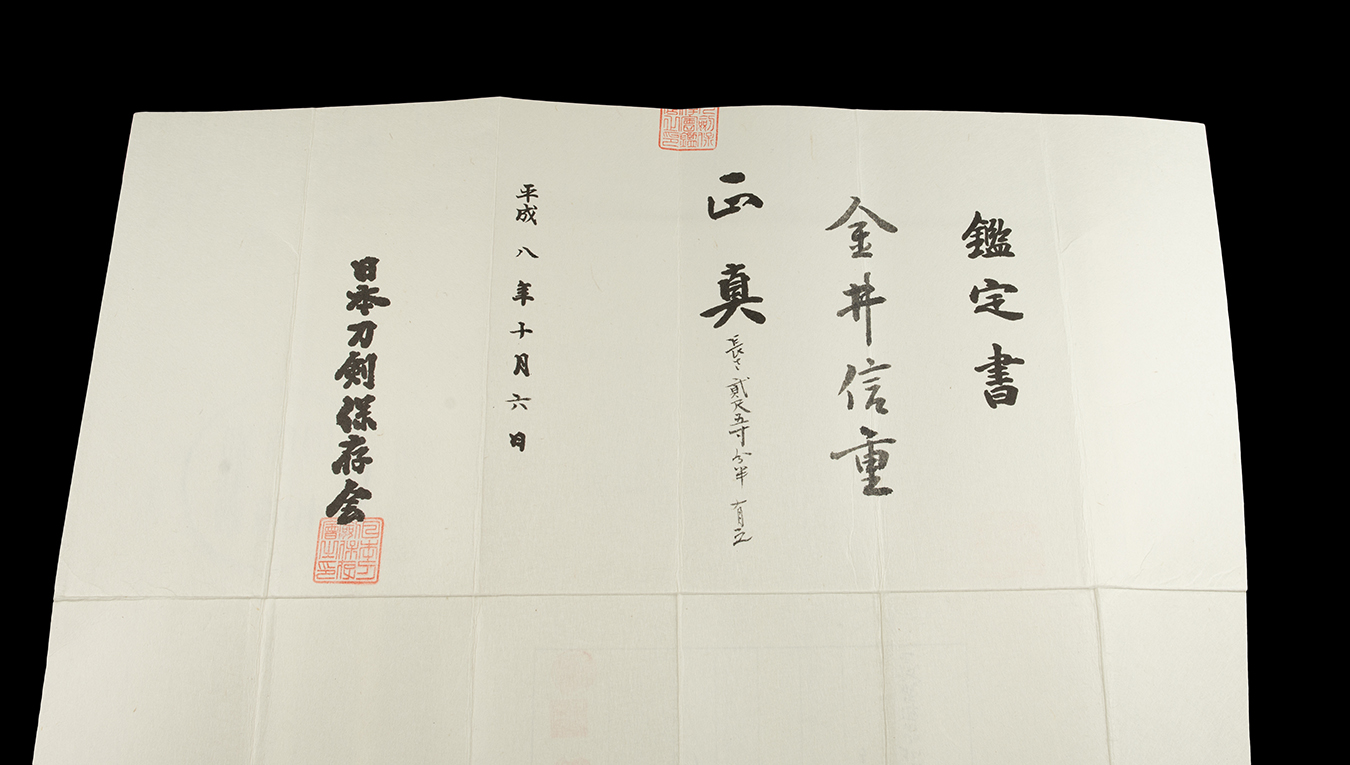 鑑定書
金井信重
正真
長さ貳尺五寸分半 有之
平成八年十月六日
日本刀剣保存会